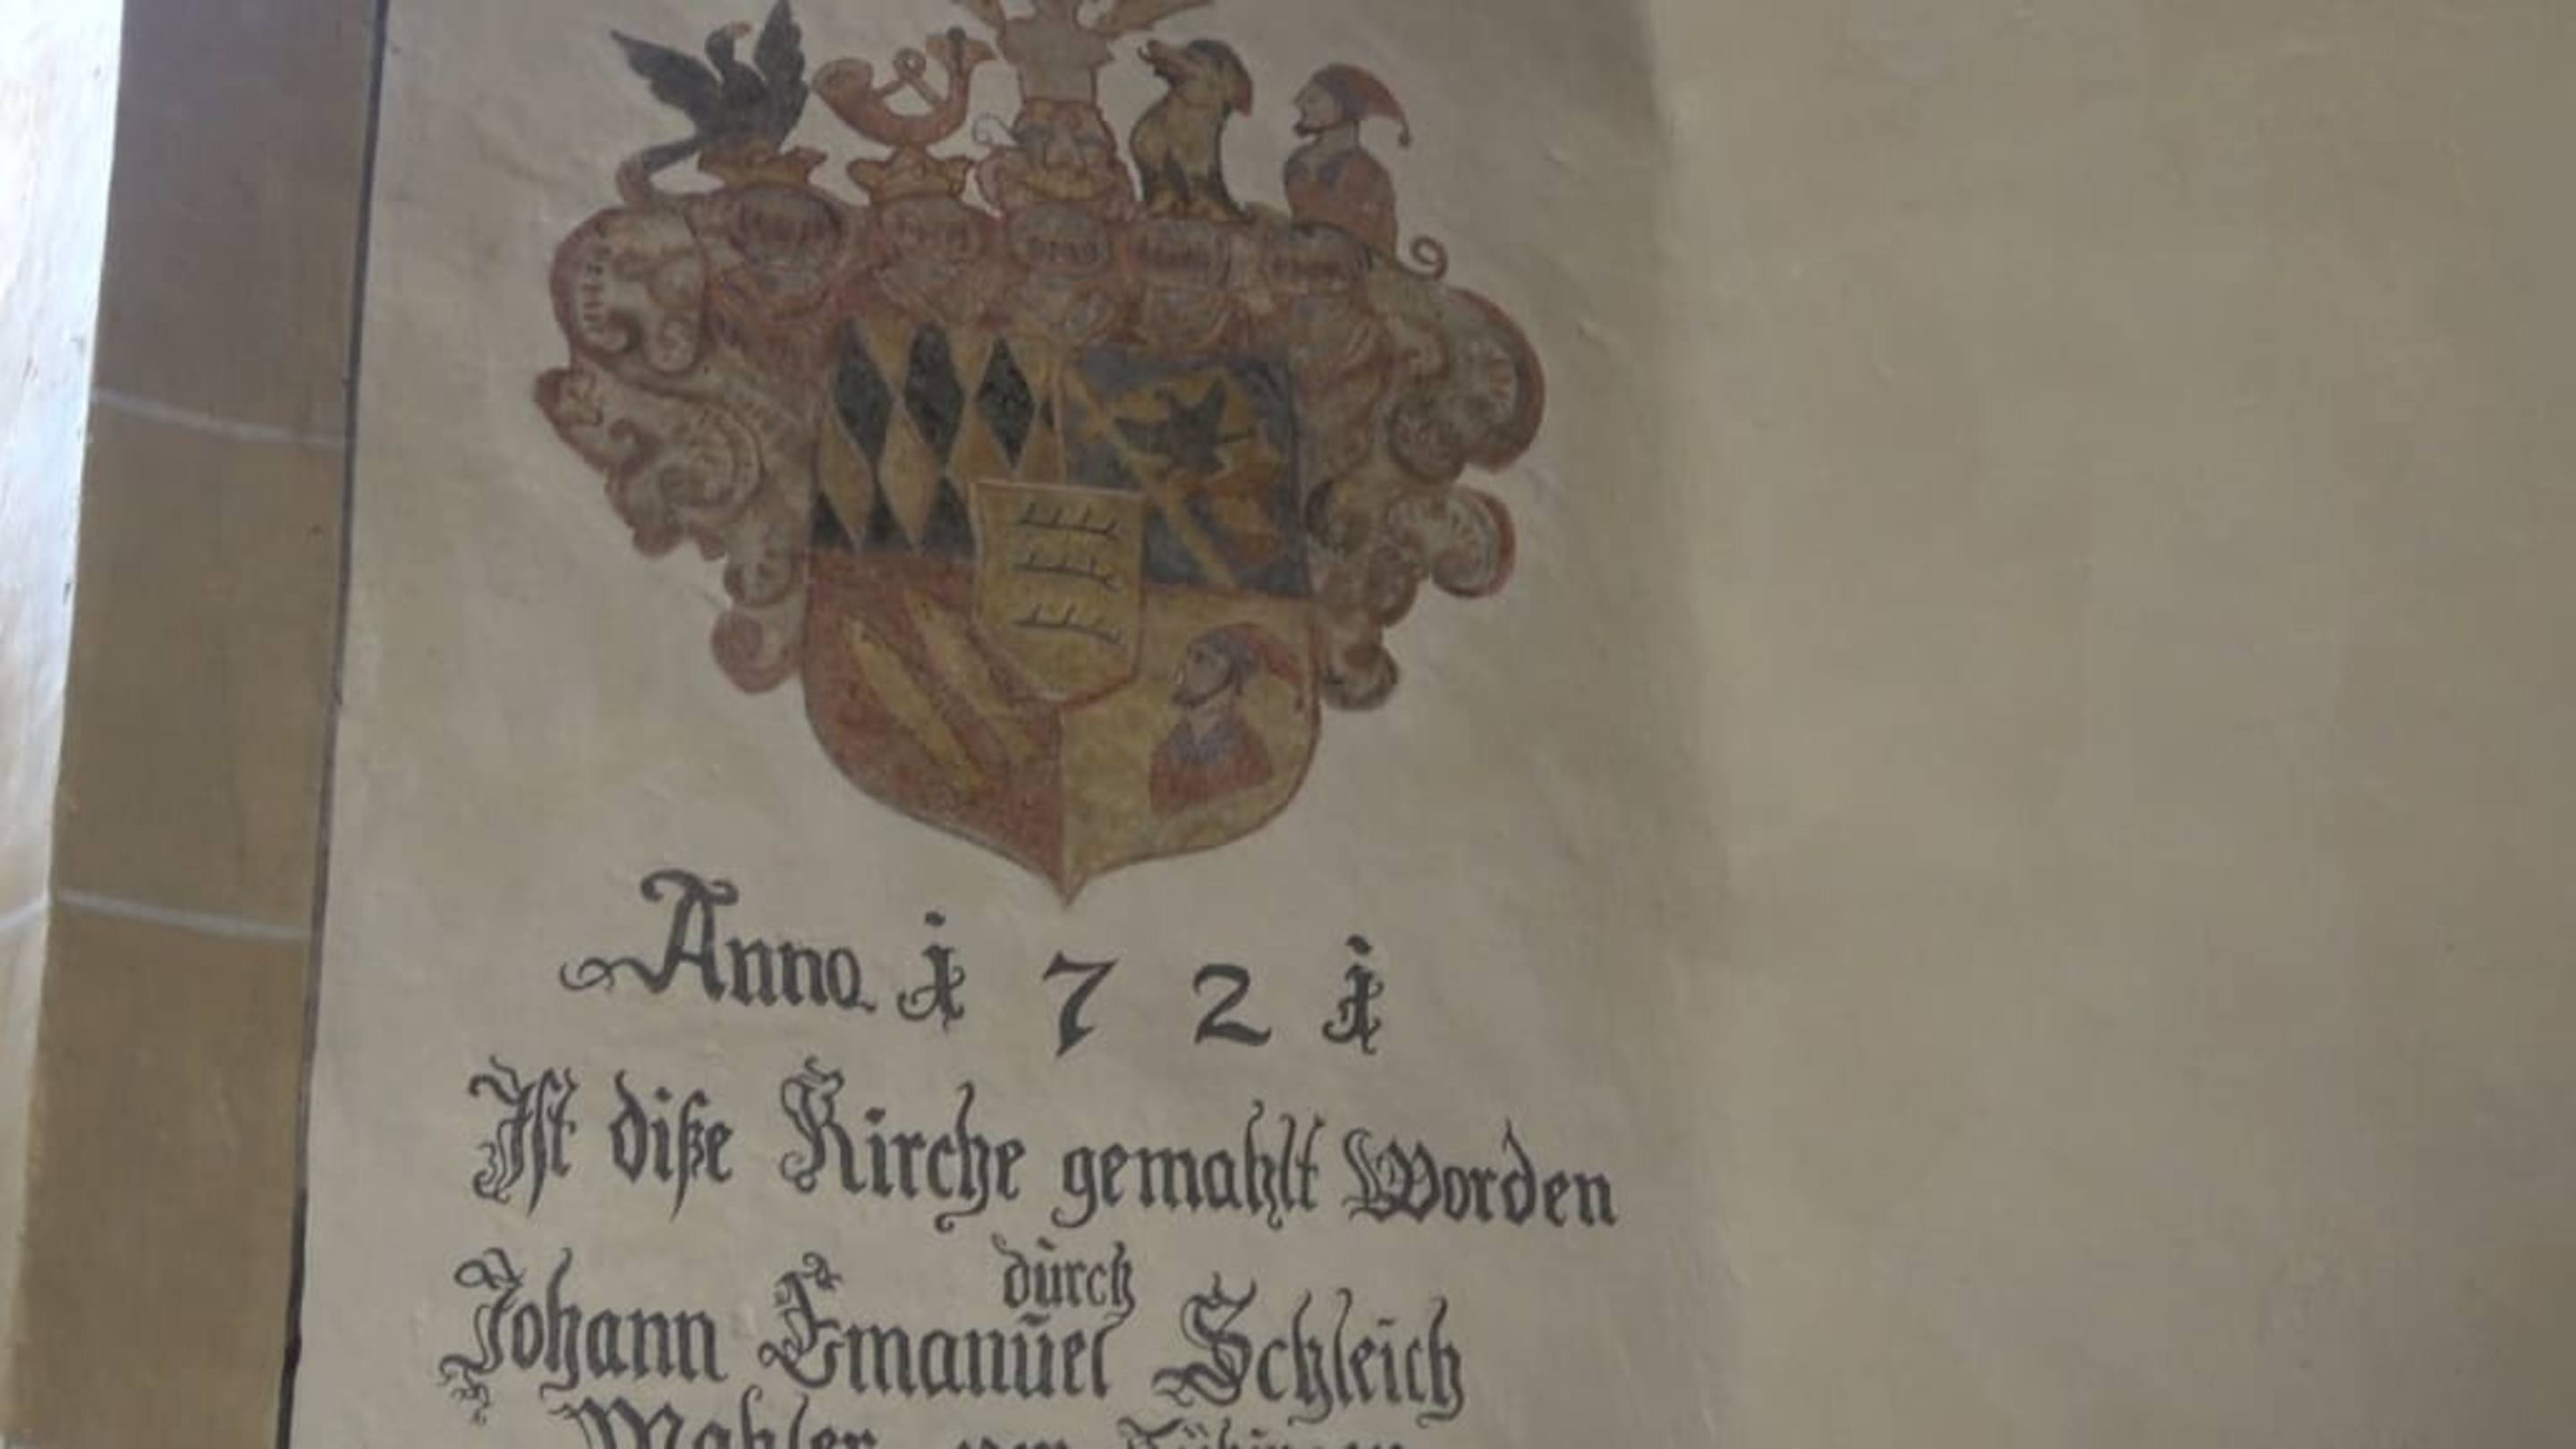 Anno 1721
Ist diße Kirche gemahlt Worden
durch
Johann Emanuel Schleich
Mahler von Tübingen